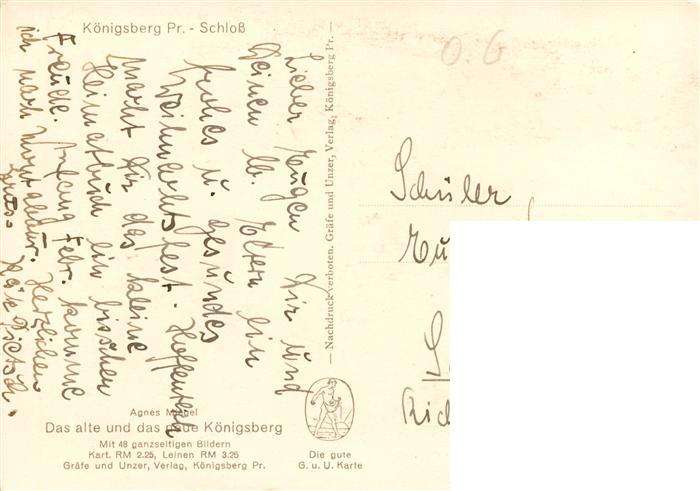 Königsberg Pr. - Schloß
Lieber Eugen Dir und
Deinen lb. Eltern ein
frohes u. gesundes
Weihnachtsfest. Hoffentlich
macht Dir das kleine
Heimatbuch ein bisschen
Freude. Anfang Febr. komme
ich nach
Herzlichen
Gruss
— Nachdruck verboten. Gräfe und Unzer, Verlag, Königsberg Pr. —
O. G
Schüler
Eu
Agnes Miegel
Das alte und das neue Königsberg
Mit 48 ganzseitigen Bildern
Kart. RM 2.25, Leinen RM 3.25
Gräfe und Unzer, Verlag, Königsberg Pr.
Die gute
G. u. U. Karte